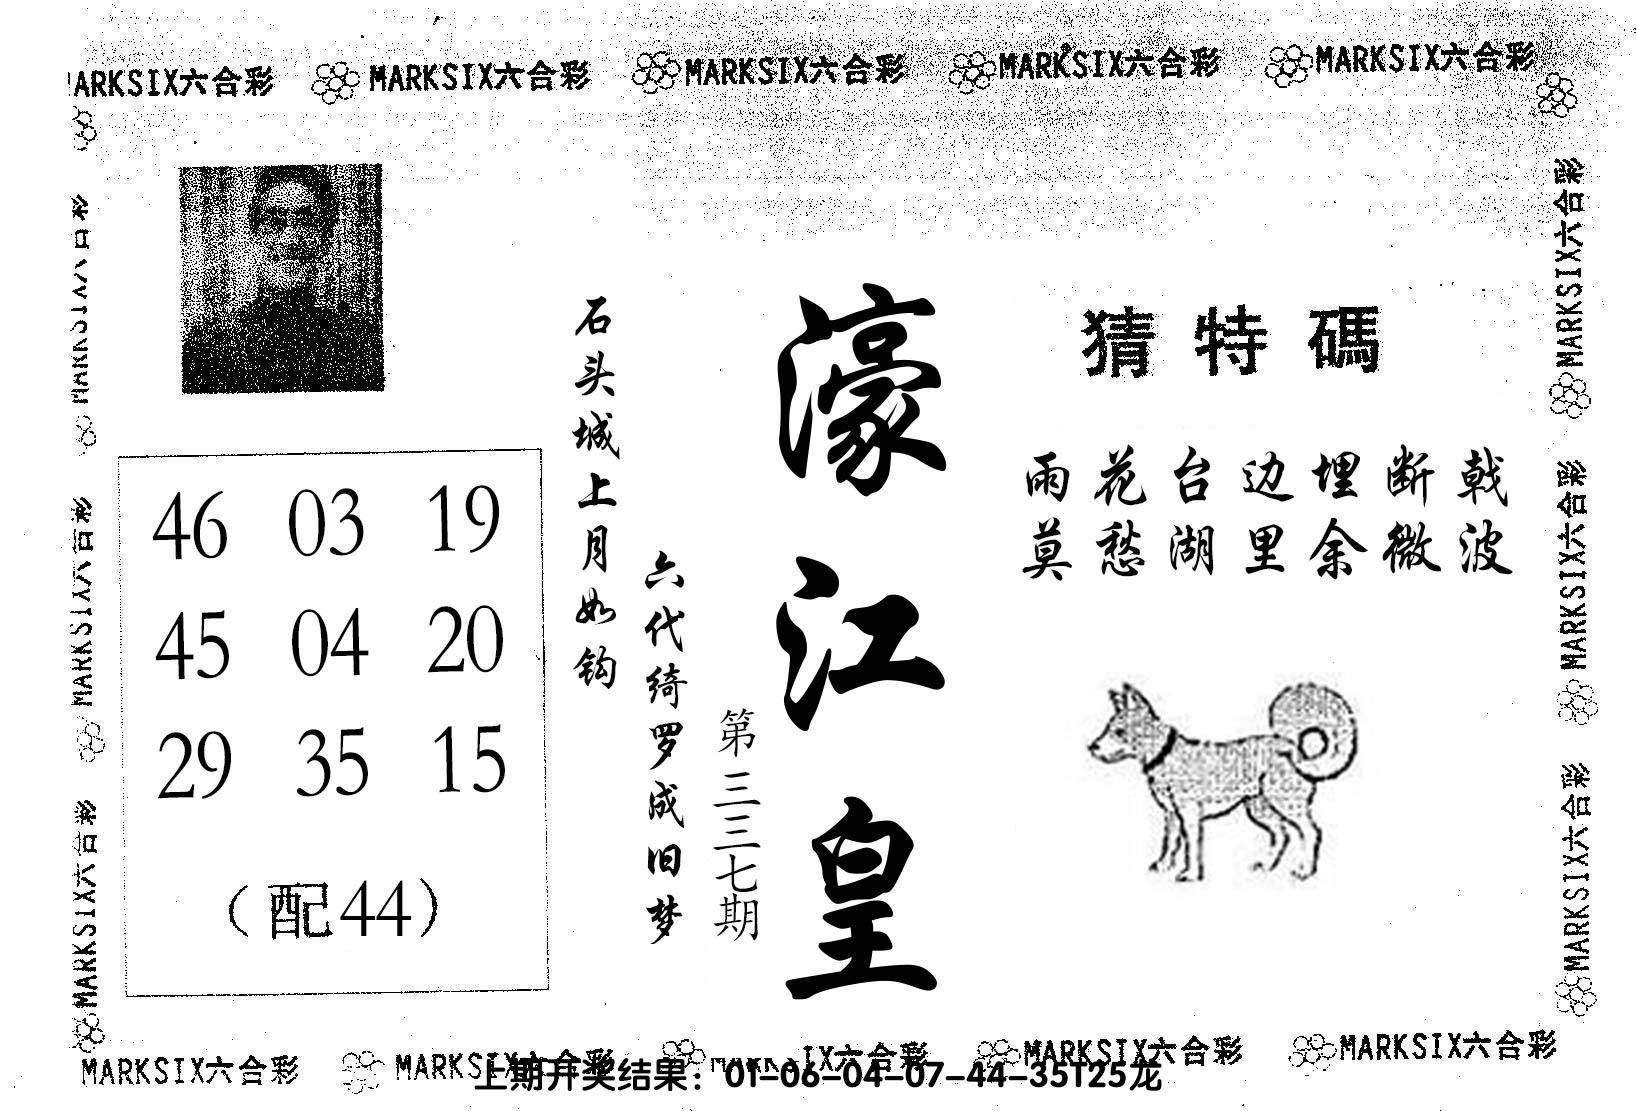 MARKSIX六合彩 MARKSIX六合彩 MARKSIX六合彩 MARKSIX六合彩
猜特碼
雨花台边埋断戟
莫愁湖里余微波
濠江皇
第三三七期
石头城上月如钩
六代绮罗成旧梦
46 03 19
45 04 20
29 35 15
（配44）
MARKSIX六合彩
MARKSIX六合彩
MARKSIX六合彩
MARKSIX六合彩
MARKSIX六合彩
MARKSIX六合彩 MARKSIX六合彩 MARKSIX六合彩 MARKSIX六合彩
上期开奖结果：01-06-04-07-44-35T25龙